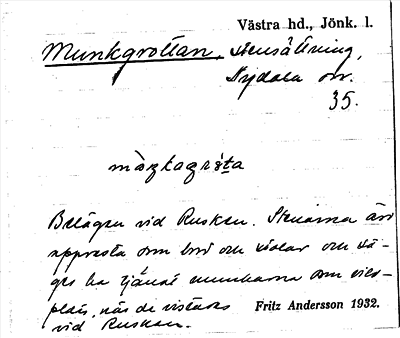 Västra hd., Jönk. l.
Munkgrottan, stensättning,
Nydala sn.
35.
Belägen vid Rusken. Stenarna äro
uppresta som bord och stolar och sä-
ges ha tjänat munkarna som vilo-
plats, när de vistades Fritz Andersson 1932.
vid Rusken.